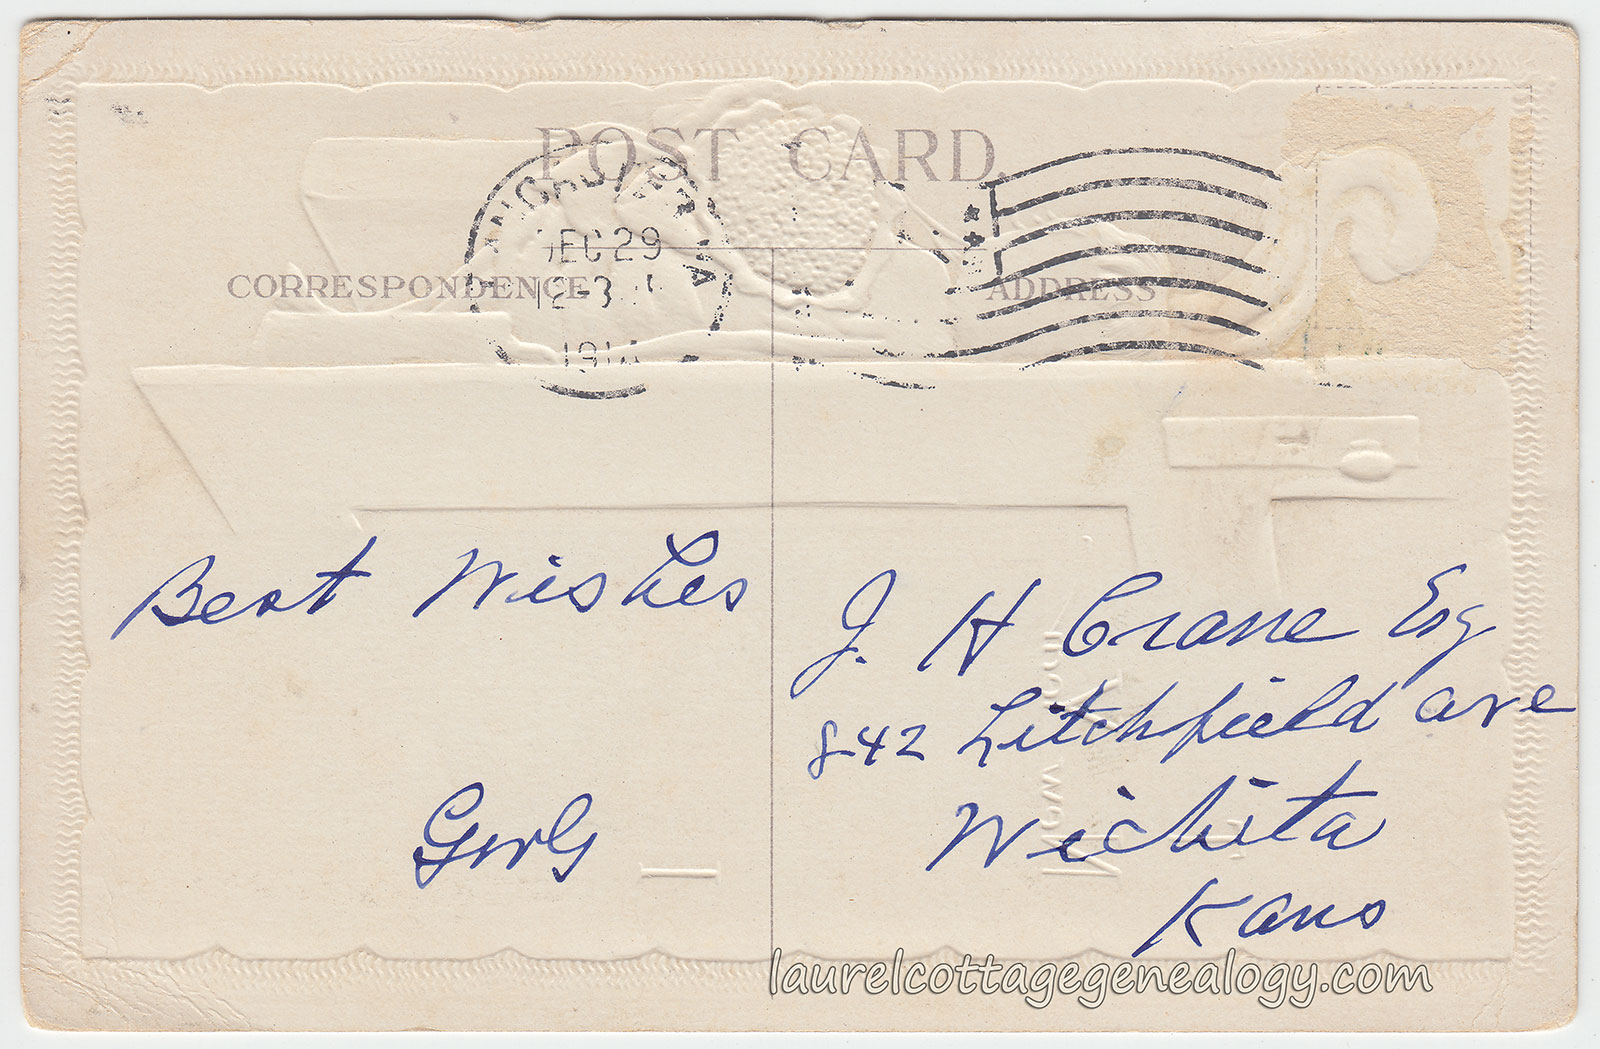 POST CARD.
DEC 29
12-3
191
CORRESPONDENCE
ADDRESS
Best Wishes
GWG
J. H Crane Esq
842 Litchfield ave
Wichita
Kans
laurelcottagegenealogy.com